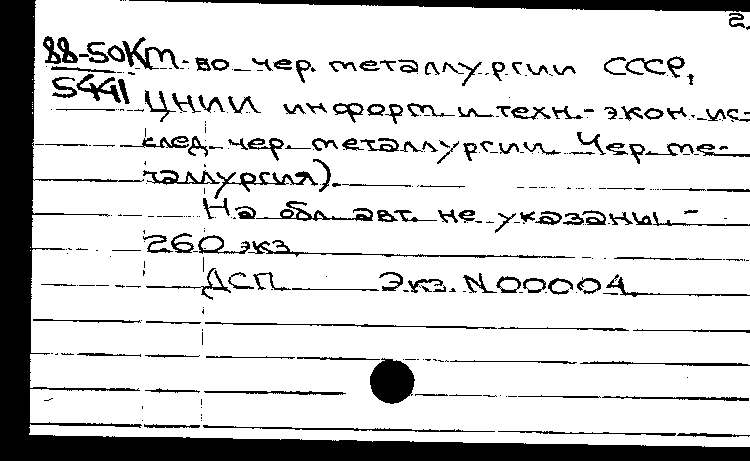 2.
88-50К
5441
м-во чер. металлургии СССР,
ЦНИИ информ. и техн.-экон. ис-
след. чер. металлургии. Чер. ме-
таллургия).
На обл. авт. не указаны. -
260 экз.
ДСП Экз. N 00004.